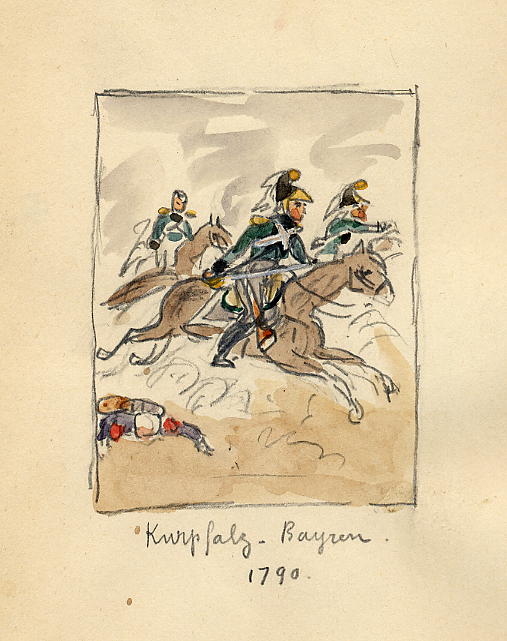 Kurpfalz - Bayren.
1790.